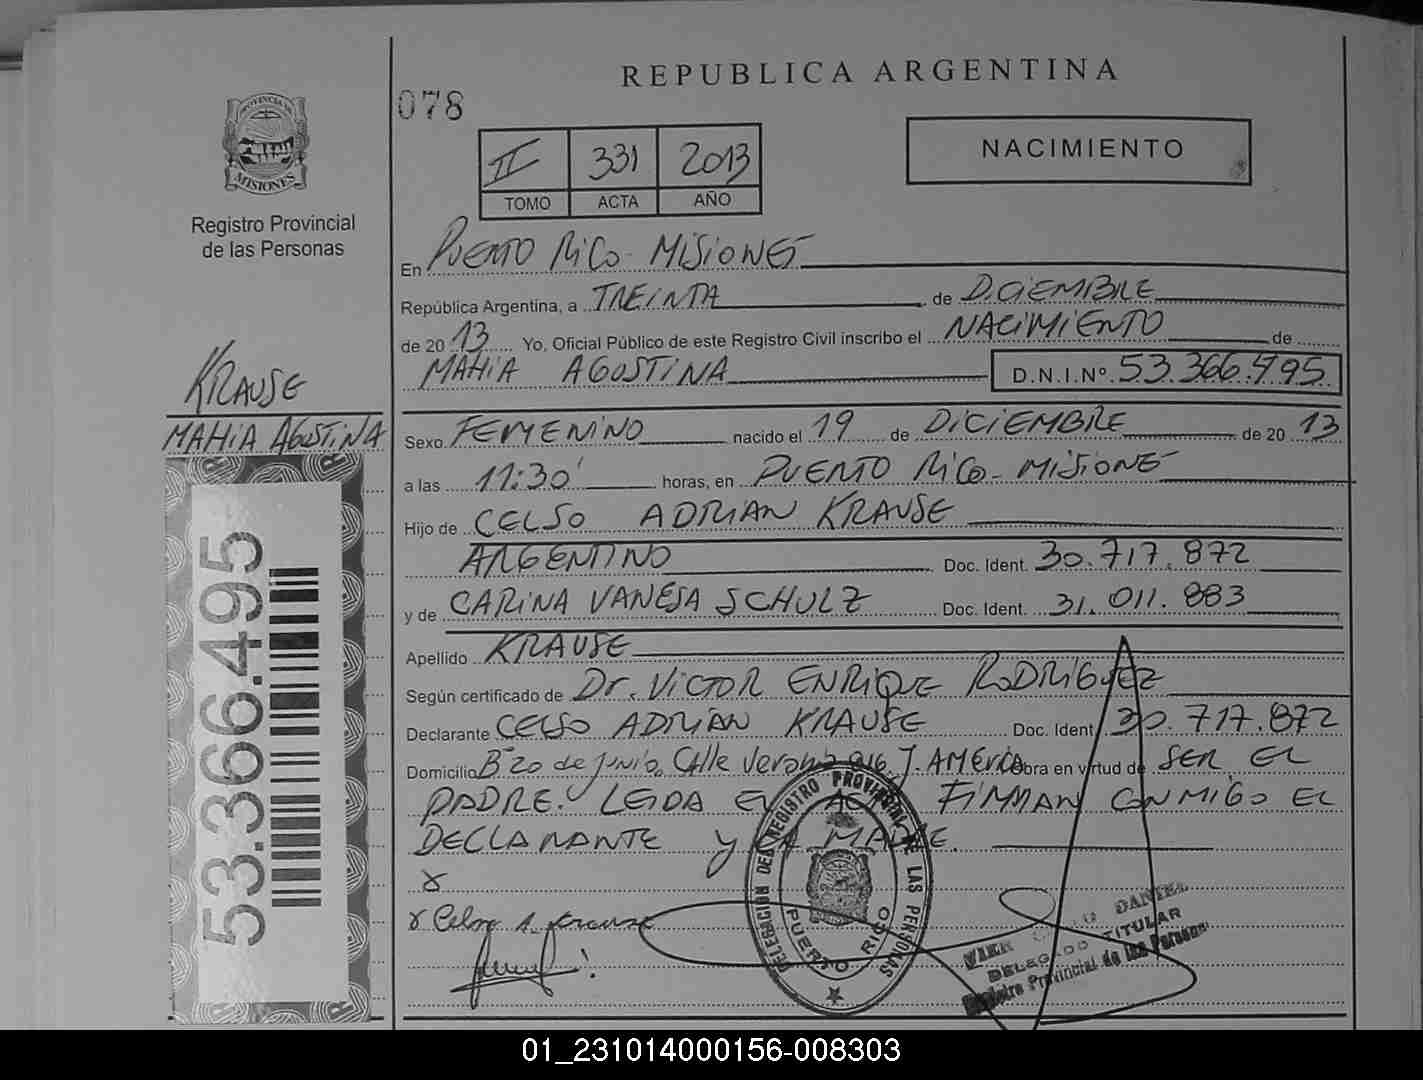 REPUBLICA ARGENTINA
078
PROVINCIA DE
MISIONES
Registro Provincial
de las Personas
II 331 2013
TOMO ACTA AÑO
NACIMIENTO
En PUERTO RICO - MISIONES
República Argentina, a TREINTA de DICIEMBRE
de 2013 Yo, Oficial Público de este Registro Civil inscribo el NACIMIENTO de
MAHIA AGUSTINA D.N.I.Nº 53.366.495
KRAUSE
MAHIA AGUSTINA
53.366.495
Sexo FEMENINO nacido el 19 de DICIEMBRE de 2013
a las 11:30' horas, en PUERTO RICO - MISIONES
Hijo de CELSO ADRIAN KRAUSE
ARGENTINO Doc. Ident. 30.717.872
y de CARINA VANESA SCHULZ Doc. Ident. 31.011.883
Apellido KRAUSE
Según certificado de Dr. VICTOR ENRIQUE RODRIGUEZ
Declarante CELSO ADRIAN KRAUSE Doc. Ident. 30.717.872
Domicilio Bº 20 de Junio, Calle J. AMERICA Obra en virtud de SER EL
PADRE. LEIDA EL ACTA FIRMAN CONMIGO EL
DECLARANTE Y LA MADRE.
x
x Celso A. Krause
DELEGACION DEL REGISTRO PROVINCIAL DE LAS PERSONAS
PUERTO RICO
DANIEL
DELEGADO TITULAR
Registro Provincial de las Personas
01_231014000156-008303